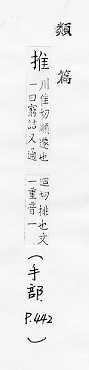 類篇
推
川隹切順遷也
一曰窮詰又通
回切排也文
一重音一
(手部 P.442)